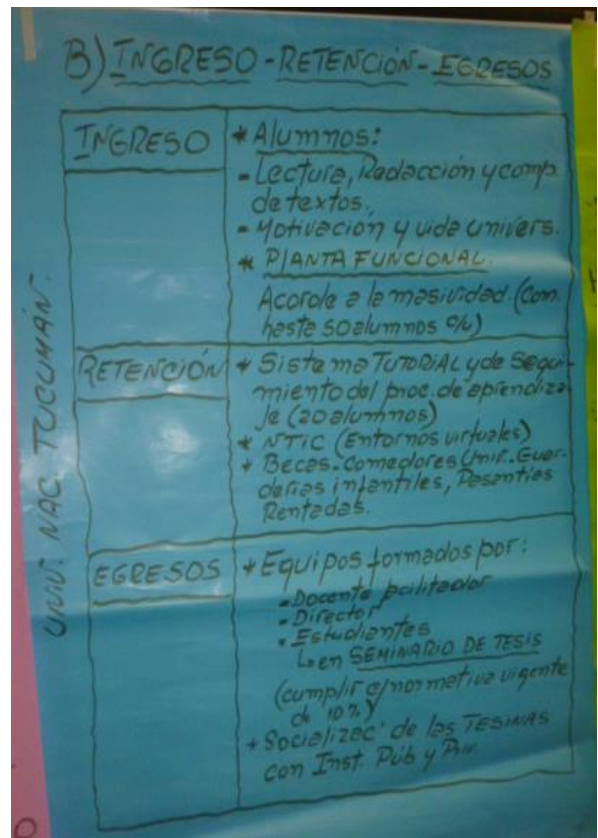 B) INGRESO - RETENCIÓN - EGRESOS
UNIV. NAC. TUCUMÁN.
INGRESO
* Alumnos:
- Lectura, Redacción y comp.
de textos.
- Motivación y vida univers.
* PLANTA FUNCIONAL.
Acorde a la masividad. (Com.
hasta 50 alumnos c/u)
RETENCIÓN
* Sistema TUTORIAL y de Segui-
miento del proc. de aprendiza-
je (20 alumnos)
* NTIC (Entornos virtuales)
* Becas. Comedores Univ. Guar-
derías infantiles, Pasantías
Rentadas.
EGRESOS
* Equipos formados por:
- Docente facilitador
- Director
- Estudiantes
↳ en SEMINARIO DE TESIS
(cumplir c/normativa vigente
10%)
* Socializac' de las TESINAS
con Inst. Púb y Priv.